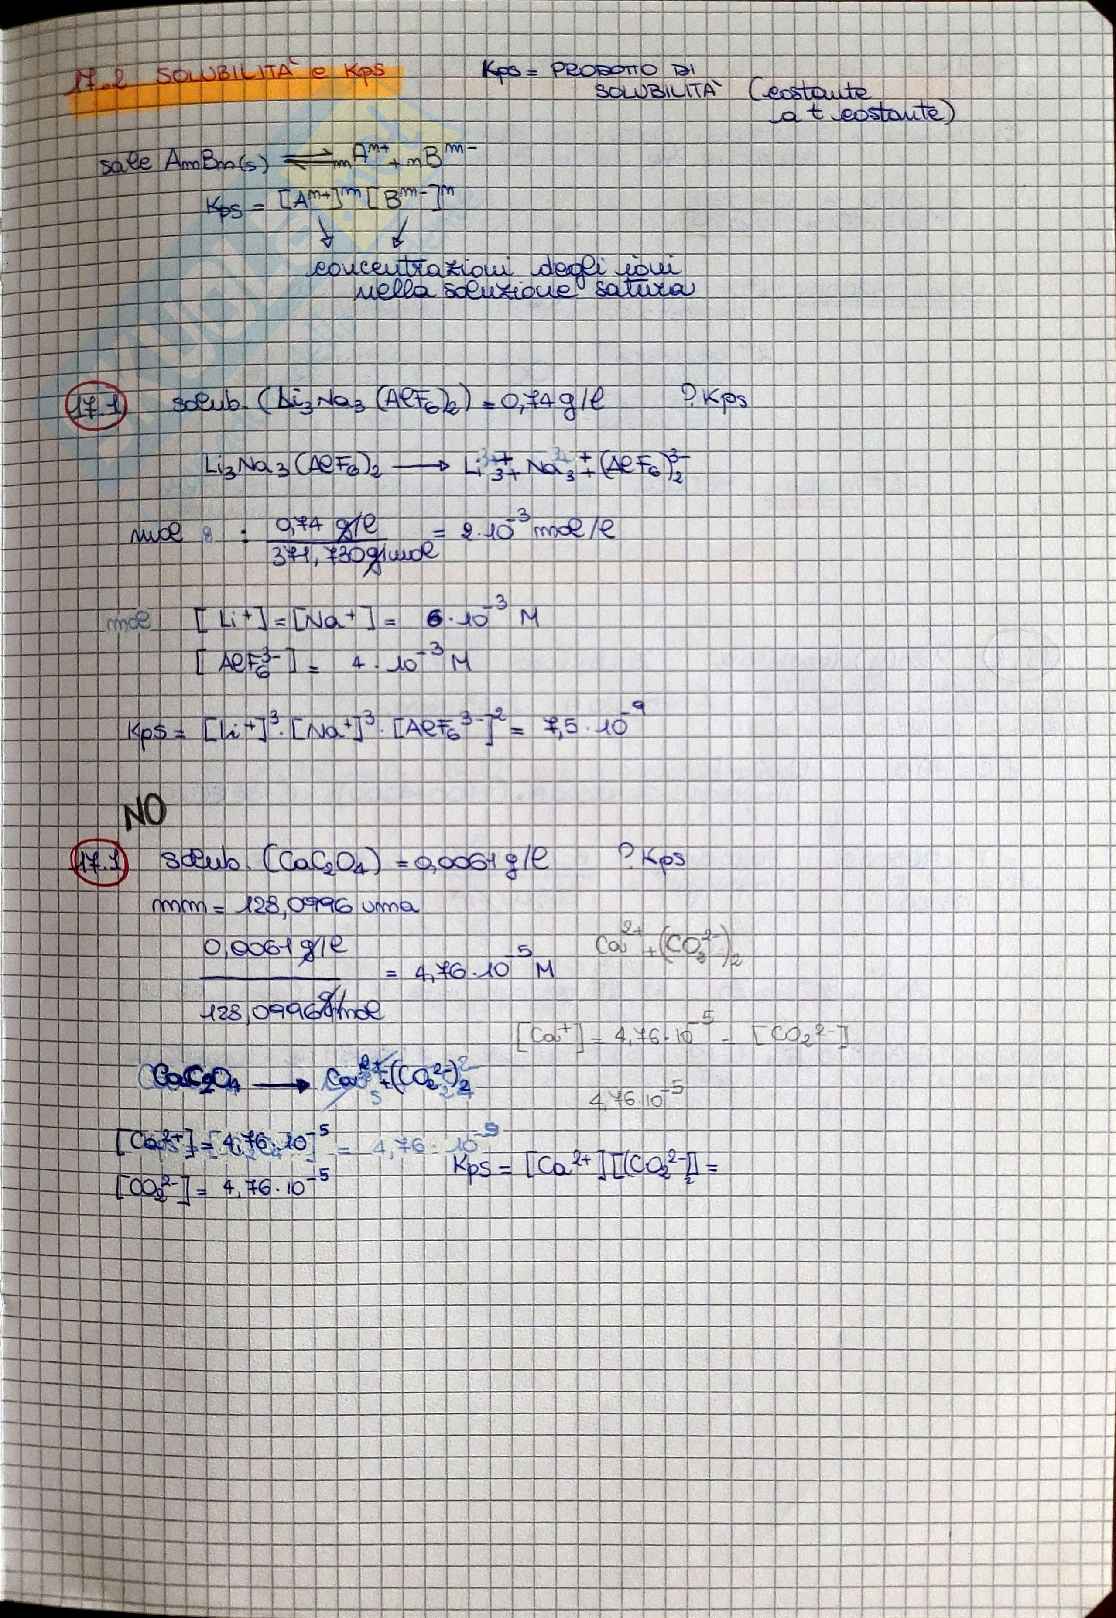 17.2 SOLUBILITÀ e Kps
Kps = PRODOTTO DI
SOLUBILITÀ (costante
a t costante)
sale AmBn(s) ⇌ mAⁿ⁺ + nBᵐ⁻
Kps = [Aⁿ⁺]ᵐ [Bᵐ⁻]ⁿ
concentrazioni degli ioni
nella soluzione satura
17.1 solub. (Li₃Na₃(AlF₆)₂) = 0,74 g/l ? Kps
Li₃Na₃(AlF₆)₂ → Li₃⁺ + Na₃⁺ + (AlF₆)₂³⁻
mol : 0,74 g/l / 371,730 g/mol = 2·10⁻³ mol/l
mol [Li⁺] = [Na⁺] = 6·10⁻³ M
[AlF₆³⁻] = 4·10⁻³ M
Kps = [Li⁺]³·[Na⁺]³·[AlF₆³⁻]² = 7,5·10⁻⁹
NO
17.1 solub. (CaC₂O₄) = 0,0061 g/l ? Kps
mm = 128,0996 uma
0,0061 g/l / 128,0996 g/mol = 4,76·10⁻⁵ M
[Ca⁺] = 4,76·10⁻⁵ = [CO₂²⁻]
CaC₂O₄ → Ca²⁺ + (CO₂²⁻)₂
4,76·10⁻⁵
[Ca²⁺] = [4,76·10]⁻⁵ = 4,76·10⁻⁵
Kps = [Ca²⁺][(CO₂²⁻]₂ =
[CO₂²⁻] = 4,76·10⁻⁵